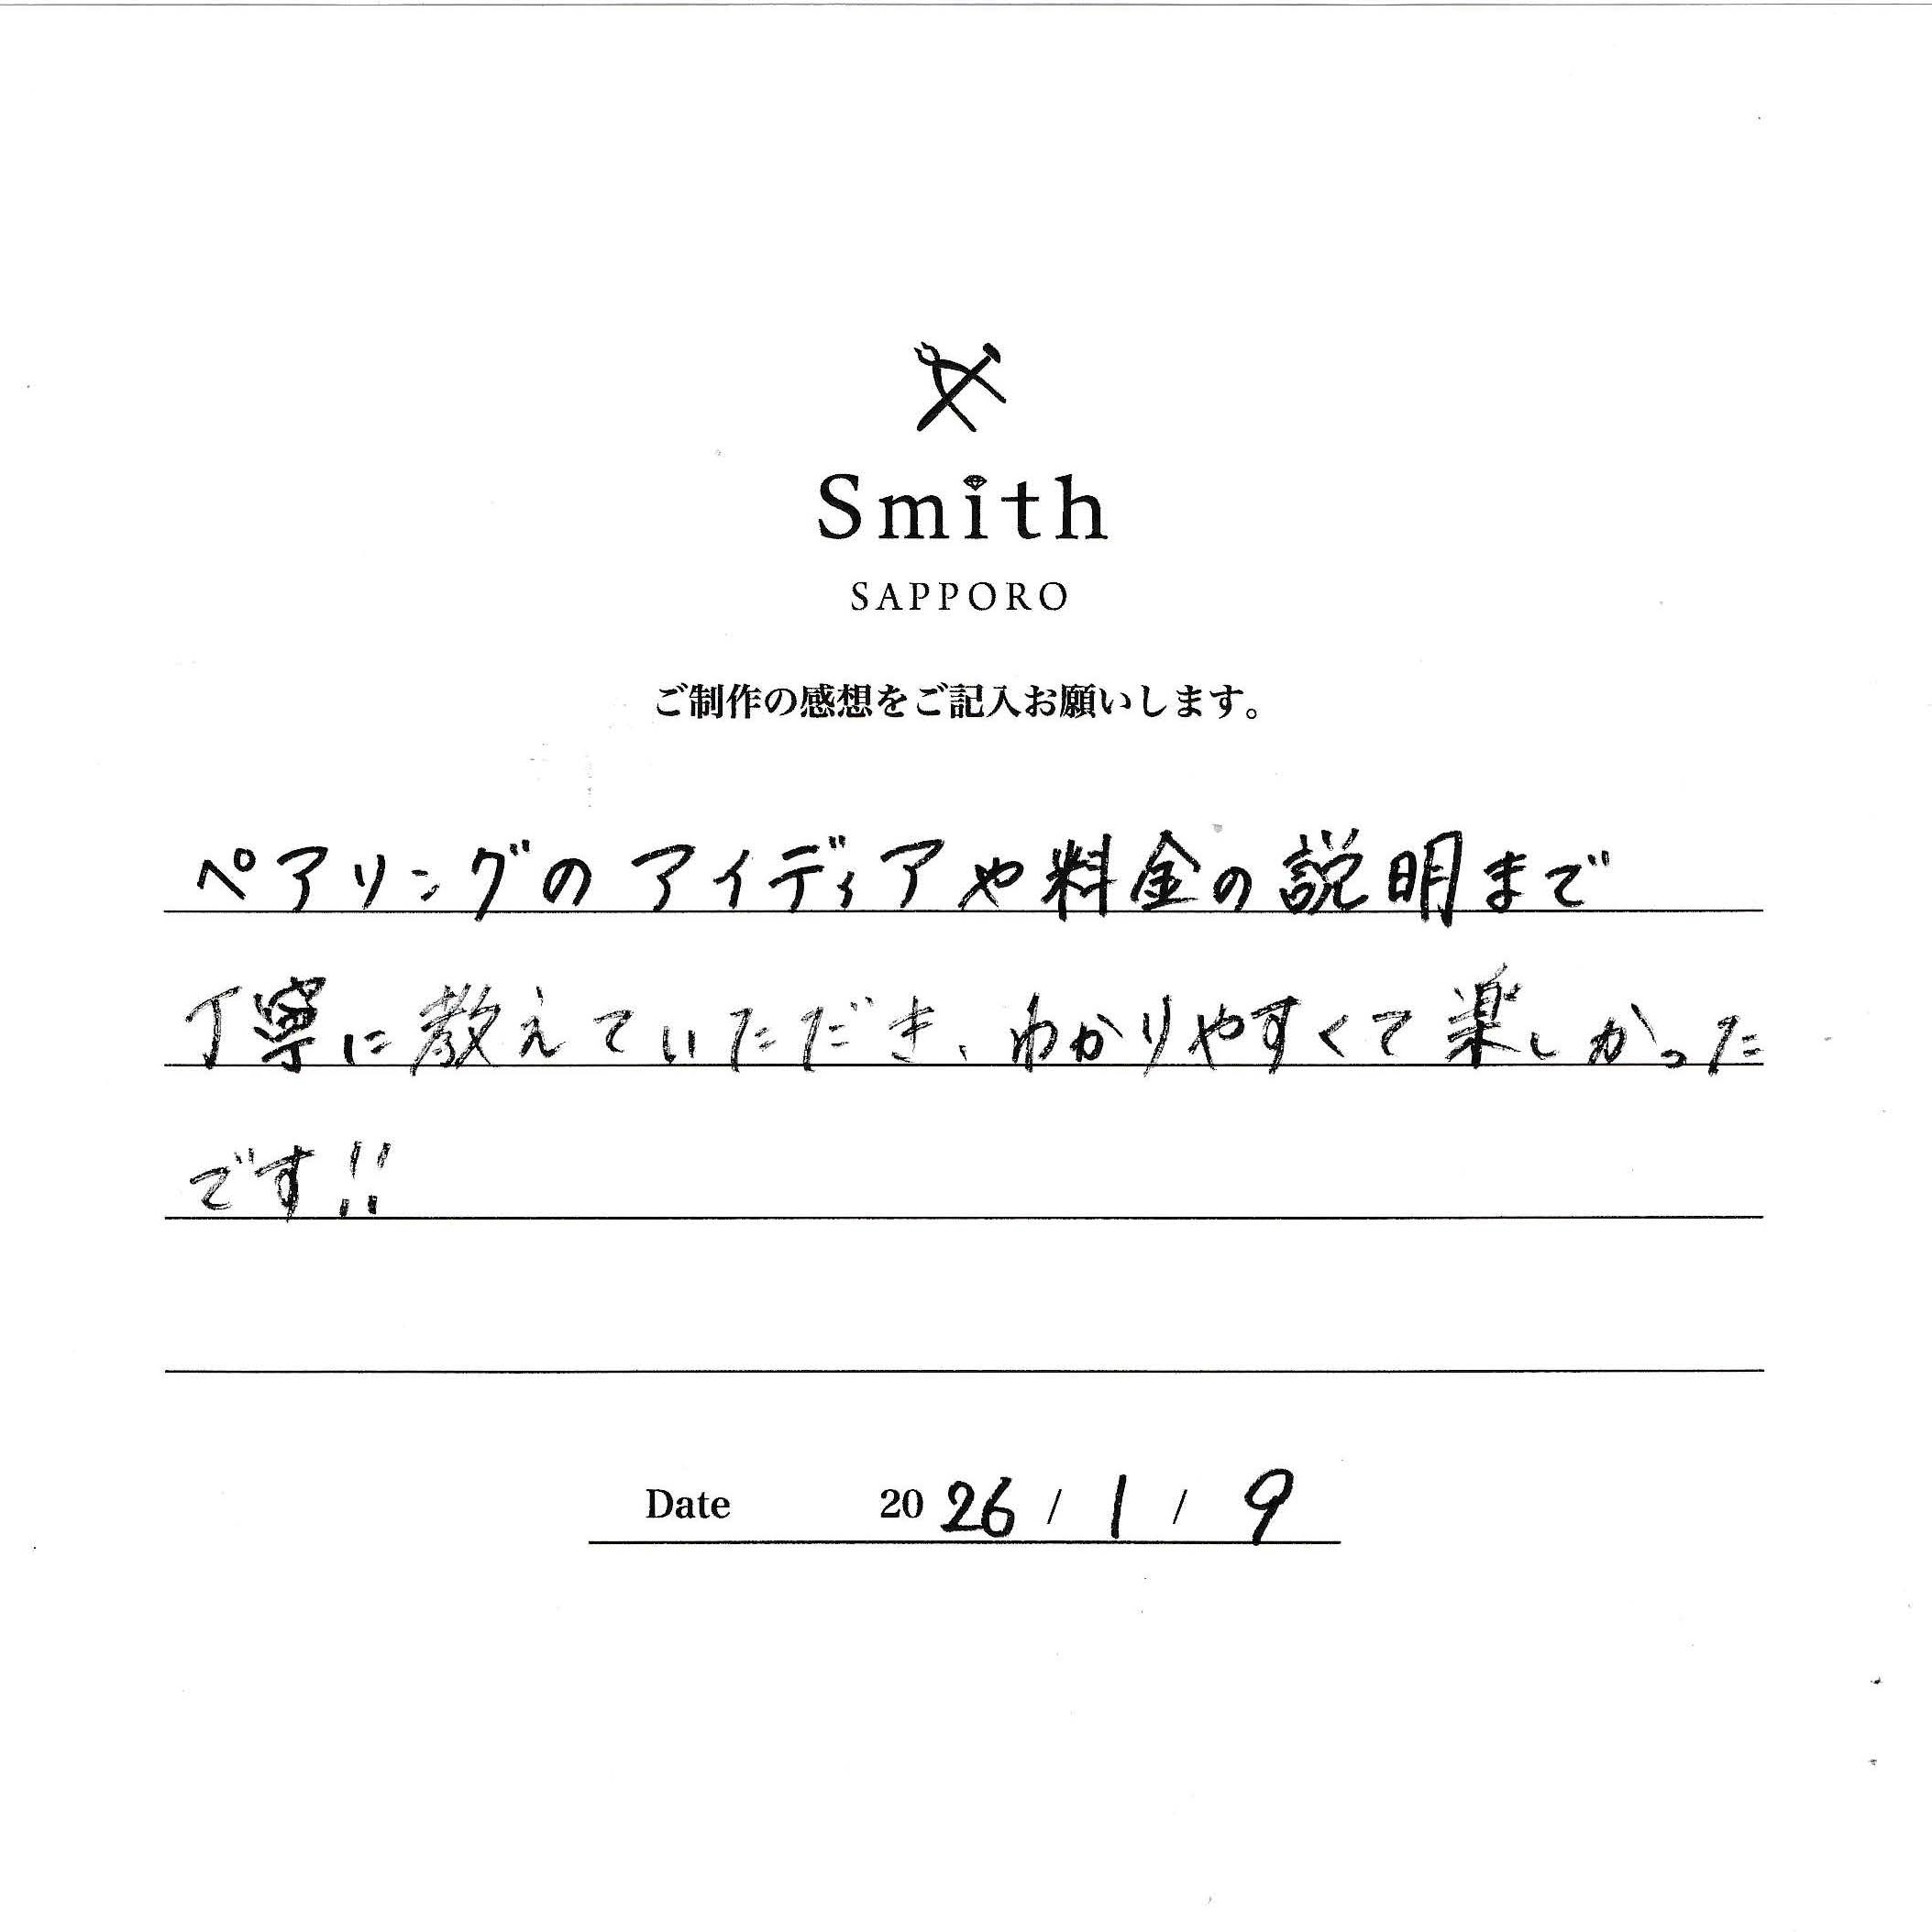 Smith
SAPPORO
ご制作の感想をご記入お願いします。
ペアリングのアイディアや料金の説明まで
丁寧に教えていただき、わかりやすくて楽しかった
です!!
Date 2026 / 1 / 9